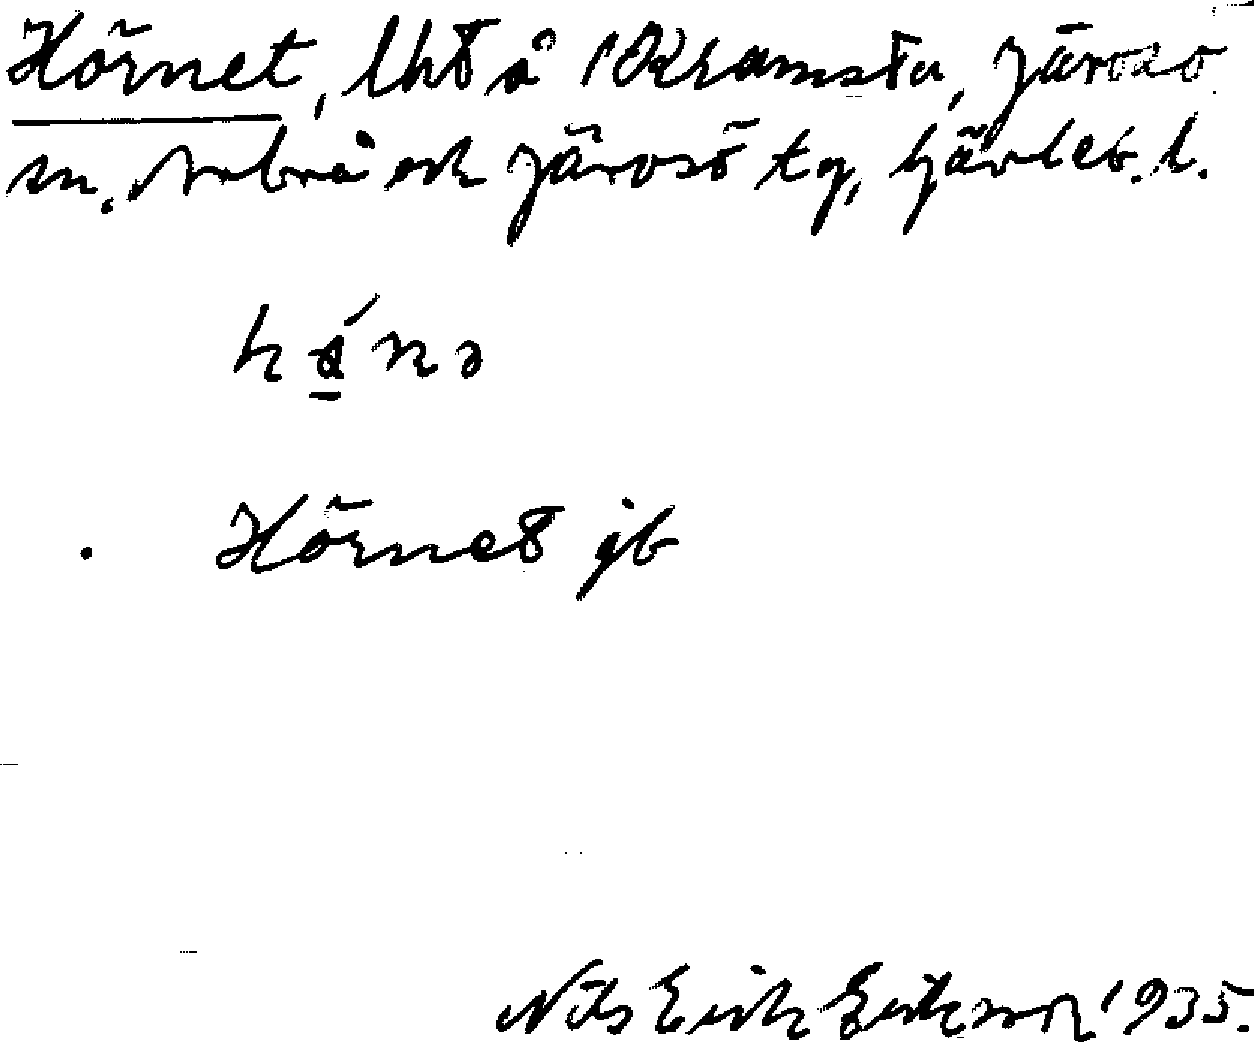 Hörnet, lht å 1 Kramsta, Järvsö
sn. Arbrå och Järvsö tg, Gävleb. l.
Hörnet jb
Nils Erik Eriksson 1935.